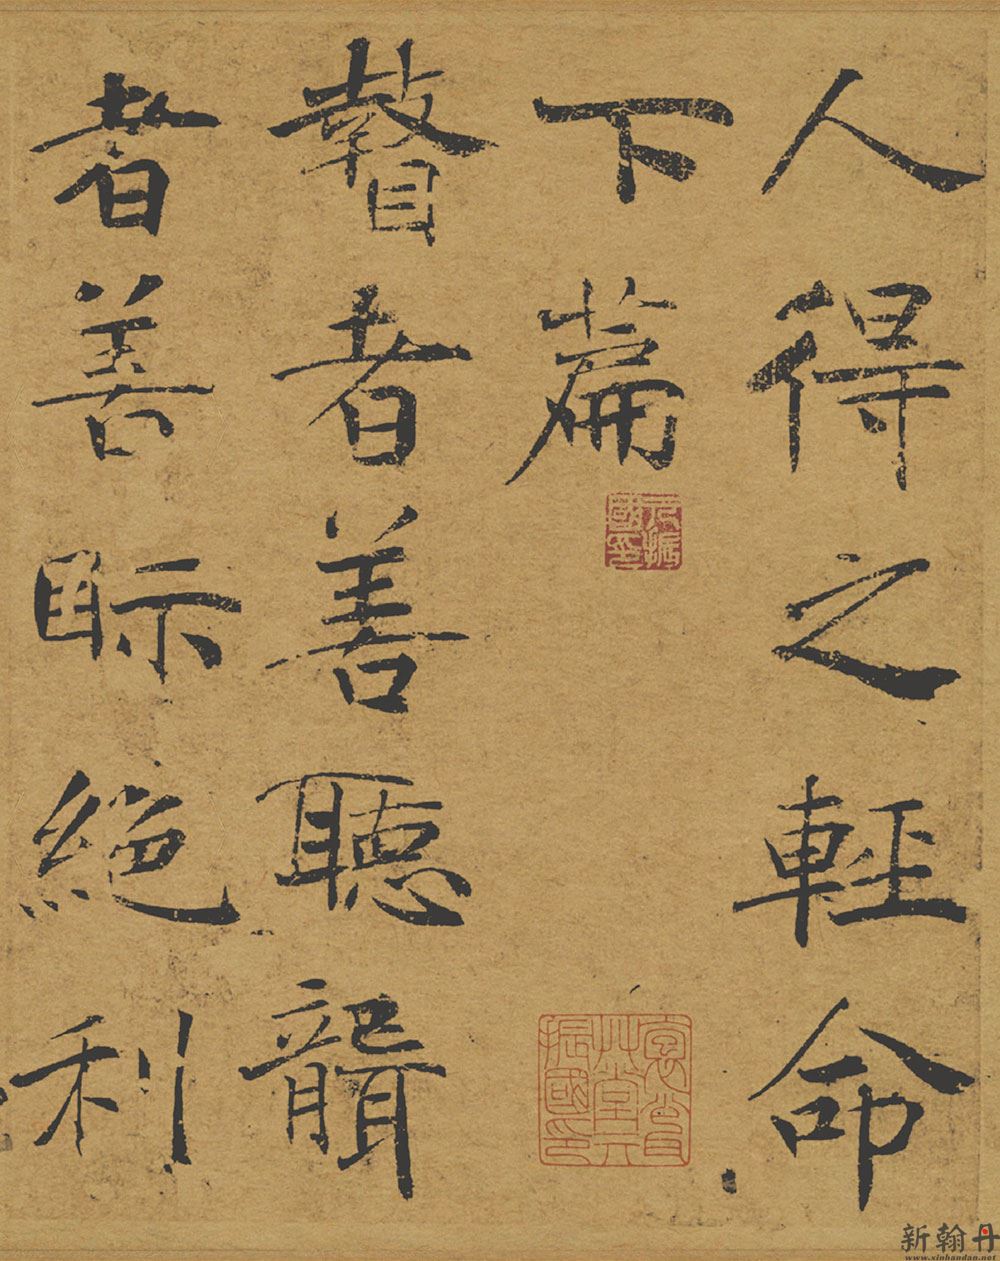 人得之輕命
下篇
瞽者善聽聾
者善眎絕利
新翰丹
www.xinhandan.net